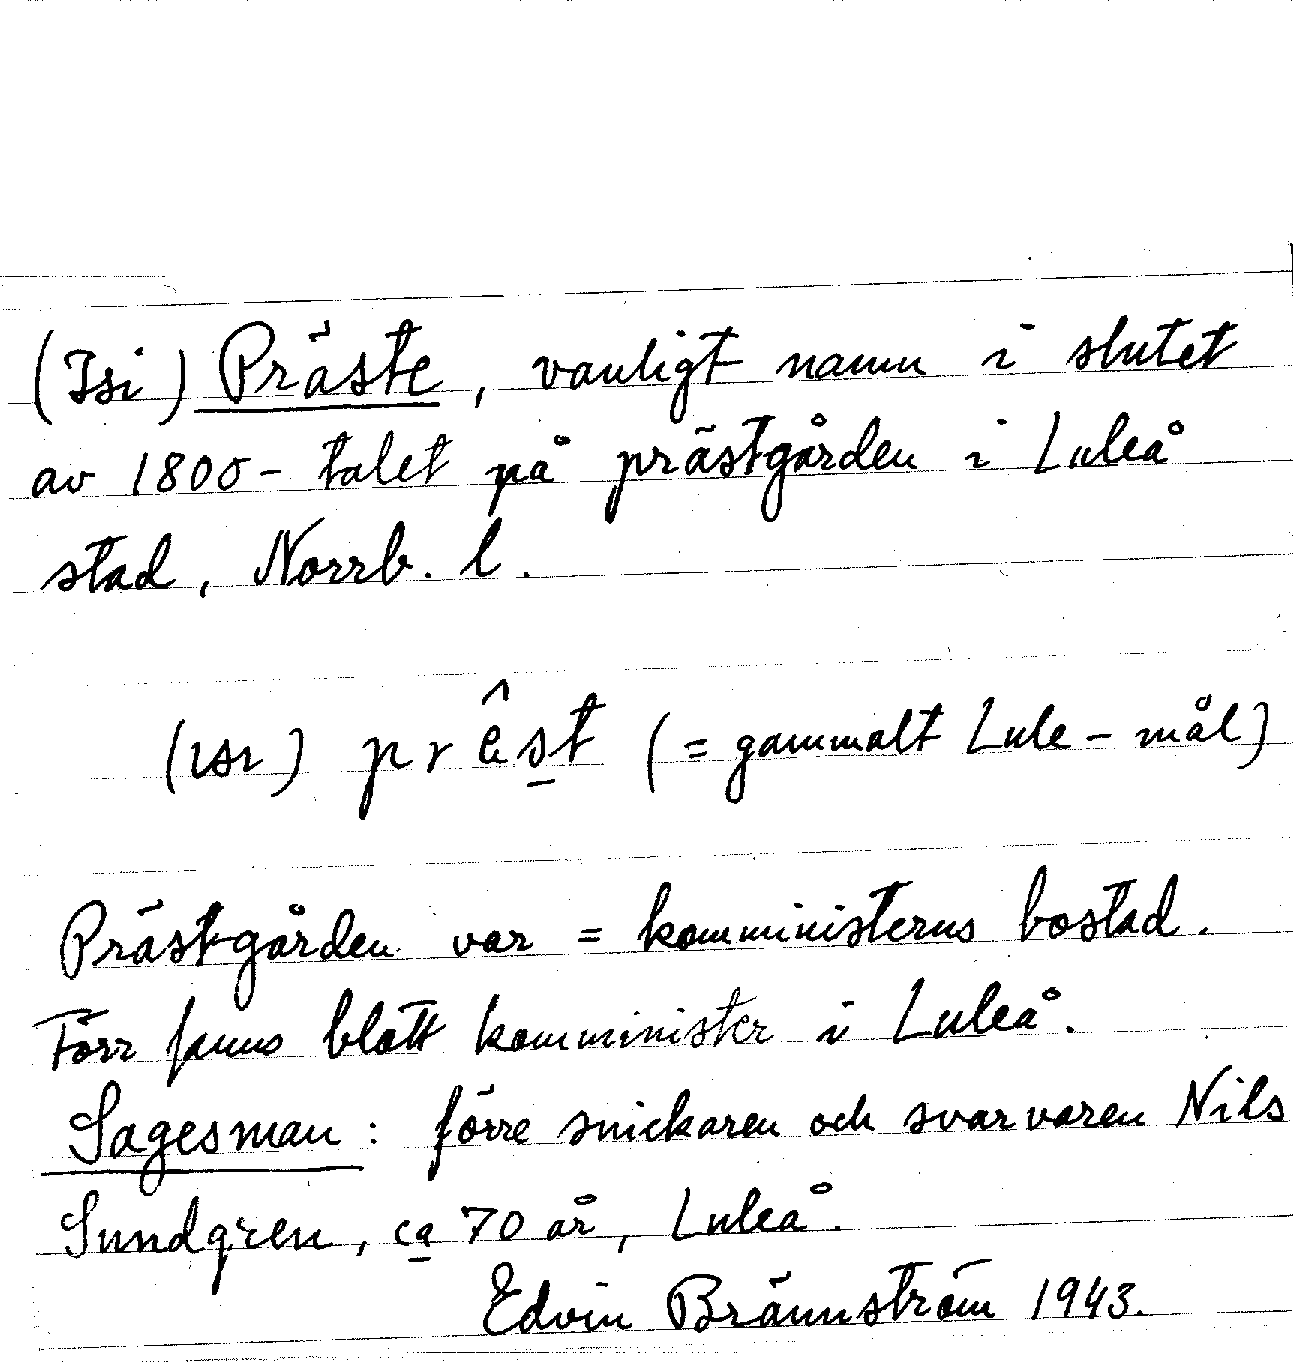 (Isi) Präste, vanligt namn i slutet
av 1800-talet på prästgården i Luleå
stad, Norrb. l.
(ısı) prêst (= gammalt Lule-mål)
Prästgården var = komministerns bostad.
Förr fanns blott komminister i Luleå.
Sagesman: förre snickaren och svarvaren Nils
Sundgren, ca 70 år, Luleå.
Edvin Brännström 1943.